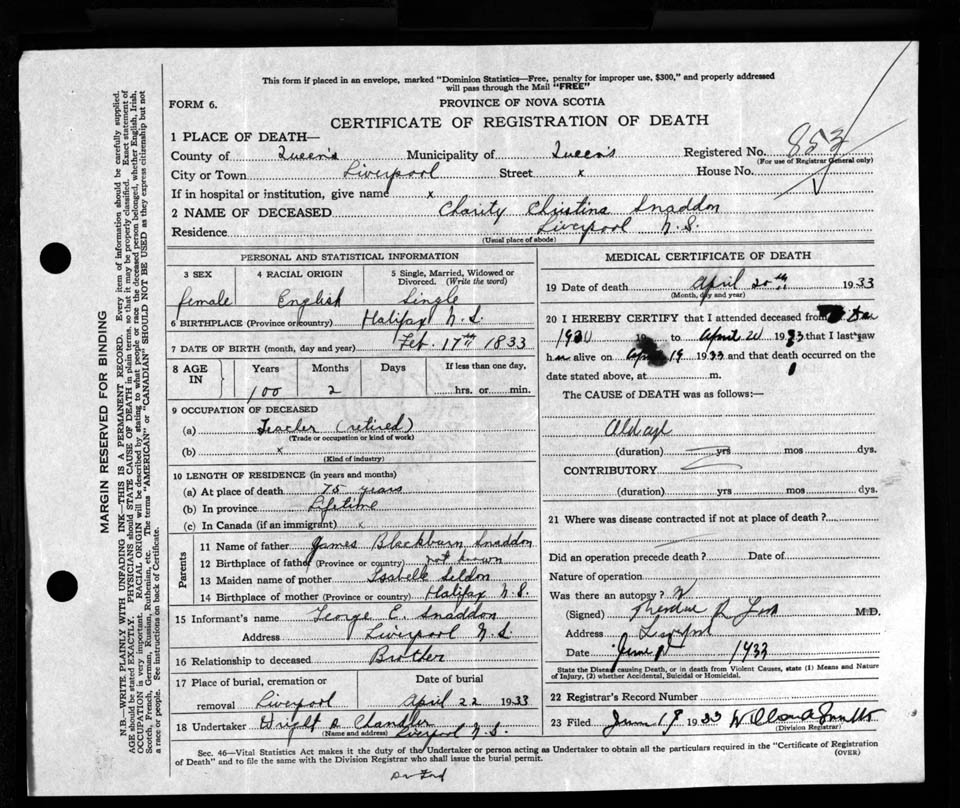 This form if placed in an envelope, marked "Dominion Statistics—Free, penalty for improper use, $300," and properly addressed
will pass through the Mail "FREE"
FORM 6.
PROVINCE OF NOVA SCOTIA
CERTIFICATE OF REGISTRATION OF DEATH
1 PLACE OF DEATH—
County of Queen's Municipality of Queen's Registered No. 853
(For use of Registrar General only)
City or Town Liverpool Street x House No.
If in hospital or institution, give name x
2 NAME OF DECEASED Charity Christina Snaddon
Residence Liverpool N.S.
(Usual place of abode)
PERSONAL AND STATISTICAL INFORMATION
3 SEX 4 RACIAL ORIGIN 5 Single, Married, Widowed or
Divorced. (Write the word)
female English Single
6 BIRTHPLACE (Province or country) Halifax N.S.
7 DATE OF BIRTH (month, day and year) Feb. 17th 1833
8 AGE IN Years Months Days If less than one day,
100 2 hrs. or min.
9 OCCUPATION OF DECEASED
(a) Teacher (retired)
(Trade or occupation or kind of work)
(b) x
(Kind of industry)
10 LENGTH OF RESIDENCE (in years and months)
(a) At place of death 75 years
(b) In province Lifetime
(c) In Canada (if an immigrant) x
Parents
11 Name of father James Blackburn Snaddon
12 Birthplace of father (Province or country) not known
13 Maiden name of mother Isabelle Seldon
14 Birthplace of mother (Province or country) Halifax N.S.
15 Informant's name George E. Snaddon
Address Liverpool N.S.
16 Relationship to deceased Brother
17 Place of burial, cremation or Date of burial
removal Liverpool April 22 1933
18 Undertaker Wright & Chandler
(Name and address) Liverpool N.S.
MEDICAL CERTIFICATE OF DEATH
19 Date of death April 20th 1933
(Month, day and year)
20 I HEREBY CERTIFY that I attended deceased from
1930 19 to April 20 1933 that I last saw
h alive on April 19 1933 and that death occurred on the
date stated above, at m.
The CAUSE of DEATH was as follows:—
Old age
(duration) yrs mos dys.
CONTRIBUTORY
(duration) yrs mos dys.
21 Where was disease contracted if not at place of death?
Did an operation precede death? Date of
Nature of operation
Was there an autopsy?
(Signed) M.D.
Address Liverpool
Date June 1933
State the Disease causing Death, or in death from Violent Causes, state (1) Means and Nature
of Injury, (2) whether Accidental, Suicidal or Homicidal.
22 Registrar's Record Number
23 Filed June 19 1933
(Division Registrar)
Sec. 46—Vital Statistics Act makes it the duty of the Undertaker or person acting as Undertaker to obtain all the particulars required in the "Certificate of Registration
of Death" and to file the same with the Division Registrar who shall issue the burial permit.
(OVER)
MARGIN RESERVED FOR BINDING
N.B.—WRITE PLAINLY WITH UNFADING INK—THIS IS A PERMANENT RECORD. Every item of information should be carefully supplied.
AGE should be stated EXACTLY. PHYSICIANS should STATE CAUSE OF DEATH in plain terms, so that it may be properly classified. Exact statement of
OCCUPATION is very important. RACIAL ORIGIN will be described by stating to what people or race the deceased person belonged, whether English, Irish,
Scotch, French, German, Russian, Ruthenian, etc. The terms "AMERICAN" or "CANADIAN" SHOULD NOT BE USED as they express citizenship but not
a race or people. See instructions on back of Certificate.